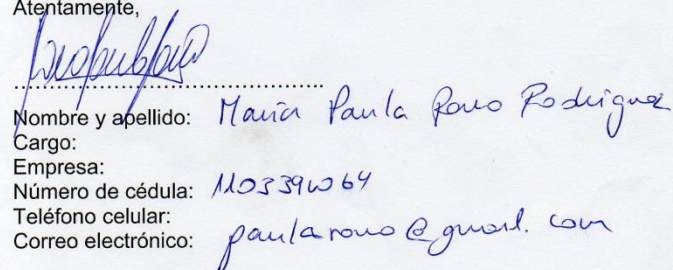 Atentamente,
Nombre y apellido: María Paula Romo Rodriguez
Cargo:
Empresa:
Número de cédula:
Teléfono celular:
Correo electrónico: paularomo@gmail.com